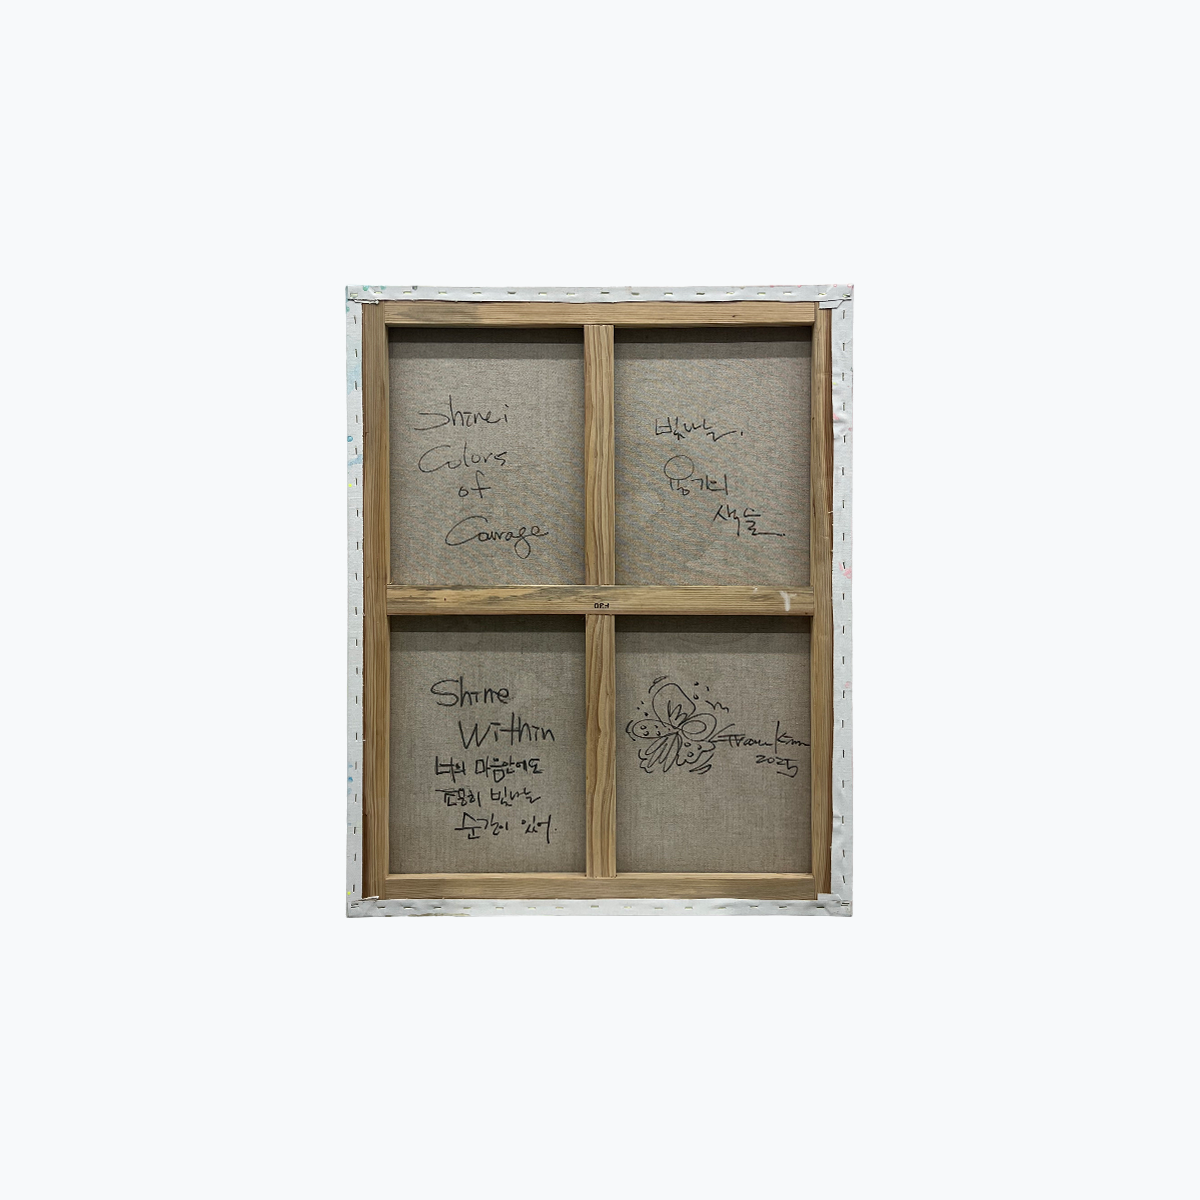 Shine;
Colors
of
Courage
빛나는.
용기의
색들.
F30
Shine
Within
너의 마음안에도
조용히 빛나는
순간이 있어.
Kim
2025